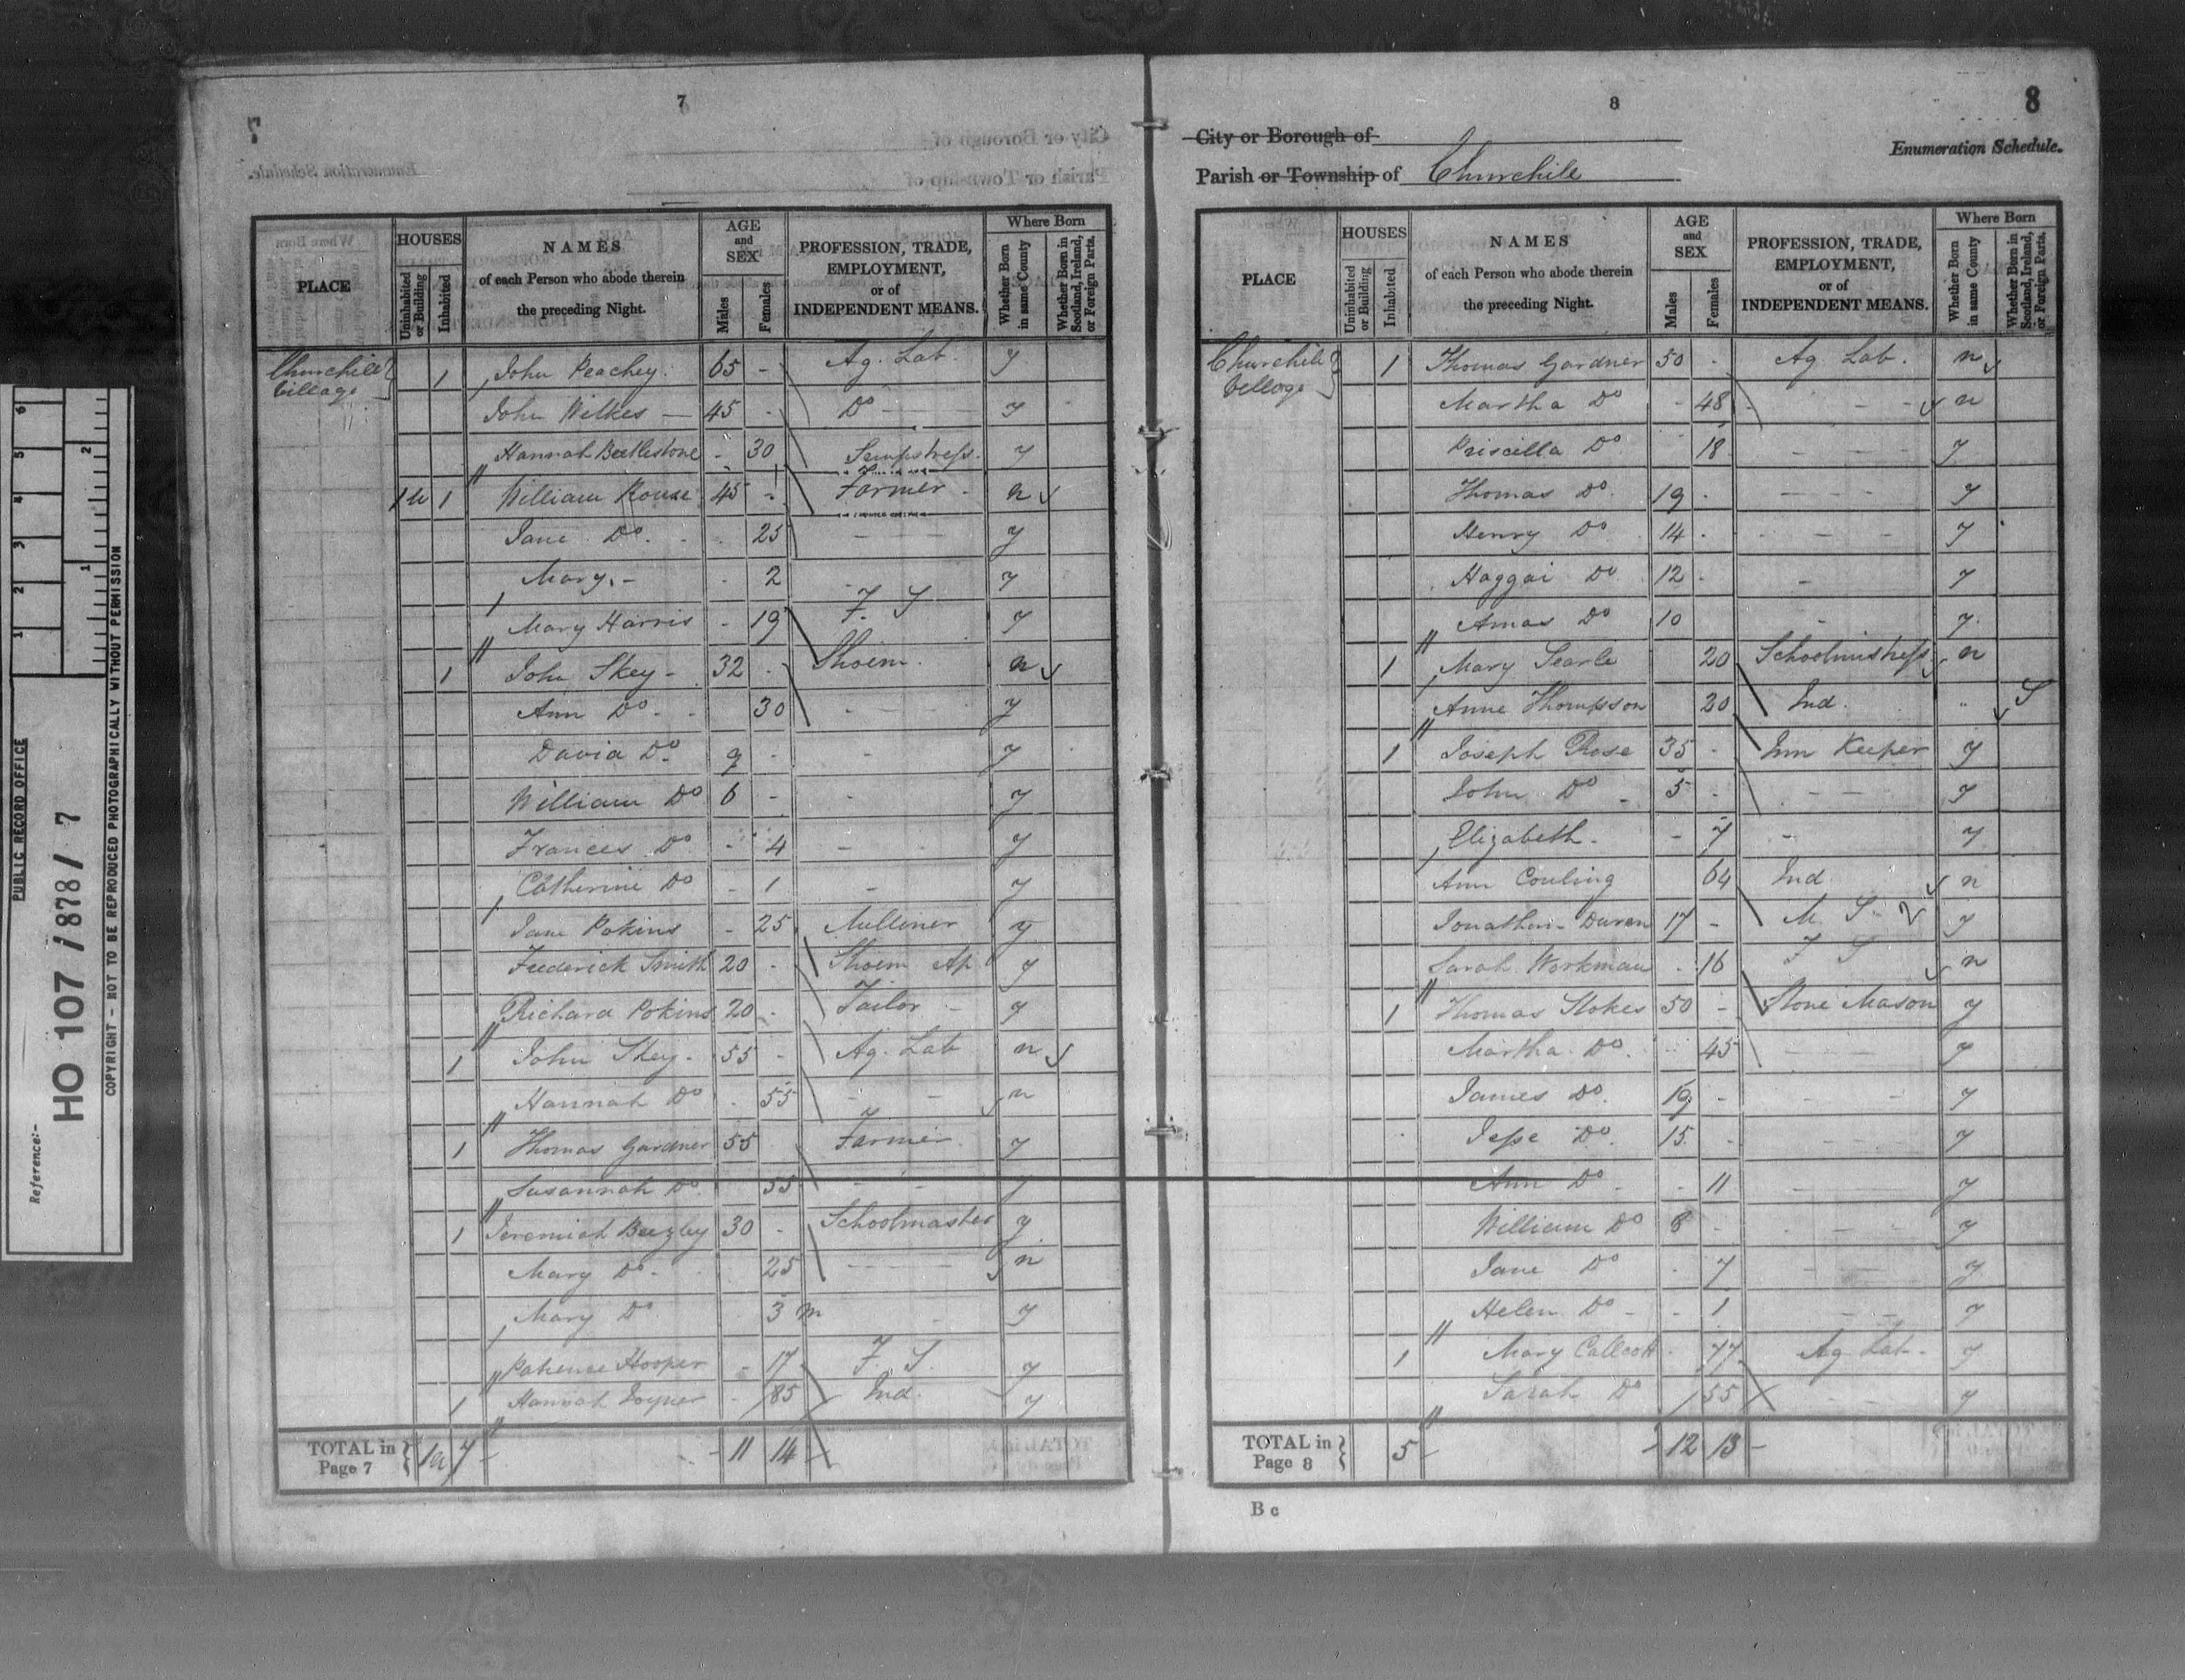 PUBLIC RECORD OFFICE
Reference:-
HO 107 / 878 / 7
COPYRIGHT - NOT TO BE REPRODUCED PHOTOGRAPHICALLY WITHOUT PERMISSION
7
PLACE
HOUSES
Uninhabited or Building
Inhabited
NAMES
of each Person who abode therein
the preceding Night.
AGE
and
SEX
Males
Females
PROFESSION, TRADE,
EMPLOYMENT,
or of
INDEPENDENT MEANS.
Where Born
Whether Born in same County
Whether Born in Scotland, Ireland, or Foreign Parts.
Churchill Village 1 John Peachey 65 - Ag. Lab. y
John Wilkes - 45 - Do y
Hannah Beetlestone - 30 Sempstress y
1 1 William Rouse 45 - Farmer n
Jane Do - 25 - - - y
Mary - - 2 - y
Mary Harris - 19 F. S y
1 John Skey - 32 - Shoem. n
Ann Do - 30 - - - y
David Do 9 - - y
William Do 6 - - y
Frances Do - 4 - - y
Catherine Do - 1 - y
Jane Pokins - 25 Milliner y
Frederick Smith 20 - Shoem Ap y
Richard Pokins 20 - Tailor - y
1 John Skey - 55 - Ag. Lab n
Hannah Do - 55 - - n
1 Thomas Gardner 55 Farmer y
Susannah Do 55 - - y
1 Jeremiah Beezley 30 - Schoolmaster y
Mary Do - 25 - - - n
Mary Do 3 m - y
Patience Hooper - 17 F. S. y
1 Hannah - 85 Ind. y
TOTAL in Page 7 7 - 11 14
8
8
City or Borough of
Parish or Township of Churchill
Enumeration Schedule.
PLACE
HOUSES
Uninhabited or Building
Inhabited
NAMES
of each Person who abode therein
the preceding Night.
AGE
and
SEX
Males
Females
PROFESSION, TRADE,
EMPLOYMENT,
or of
INDEPENDENT MEANS.
Where Born
Whether Born in same County
Whether Born in Scotland, Ireland, or Foreign Parts.
Churchill Village 1 Thomas Gardner 50 - Ag. Lab. n
Martha Do - 48 - - n
Priscilla Do 18 - - - y
Thomas Do 19 - - - - y
Henry Do 14 - - - - y
Haggai Do 12 - - y
Amos Do 10 - y
1 Mary Searle 20 Schoolmistress n
Anne Thompson 20 Ind. S
1 Joseph Rose 35 - Inn Keeper y
John Do - 5 - - - y
Elizabeth - - 7 - y
Ann Couling 64 Ind n
Jonathan Duren 17 - M. S. y
Sarah Workman - 16 F S n
1 Thomas Stokes 50 - Stone Mason y
Martha Do 45 - - - y
James Do 19 - - - y
Jesse Do 15 - - - - y
Ann Do - - 11 - - y
William Do 8 - - - - y
Jane Do - 7 - - y
Helen Do - - 1 - - y
1 Mary Callcott - 77 Ag. Lab. y
Sarah Do 55 - - y
TOTAL in Page 8 5 - 12 13 -
B c